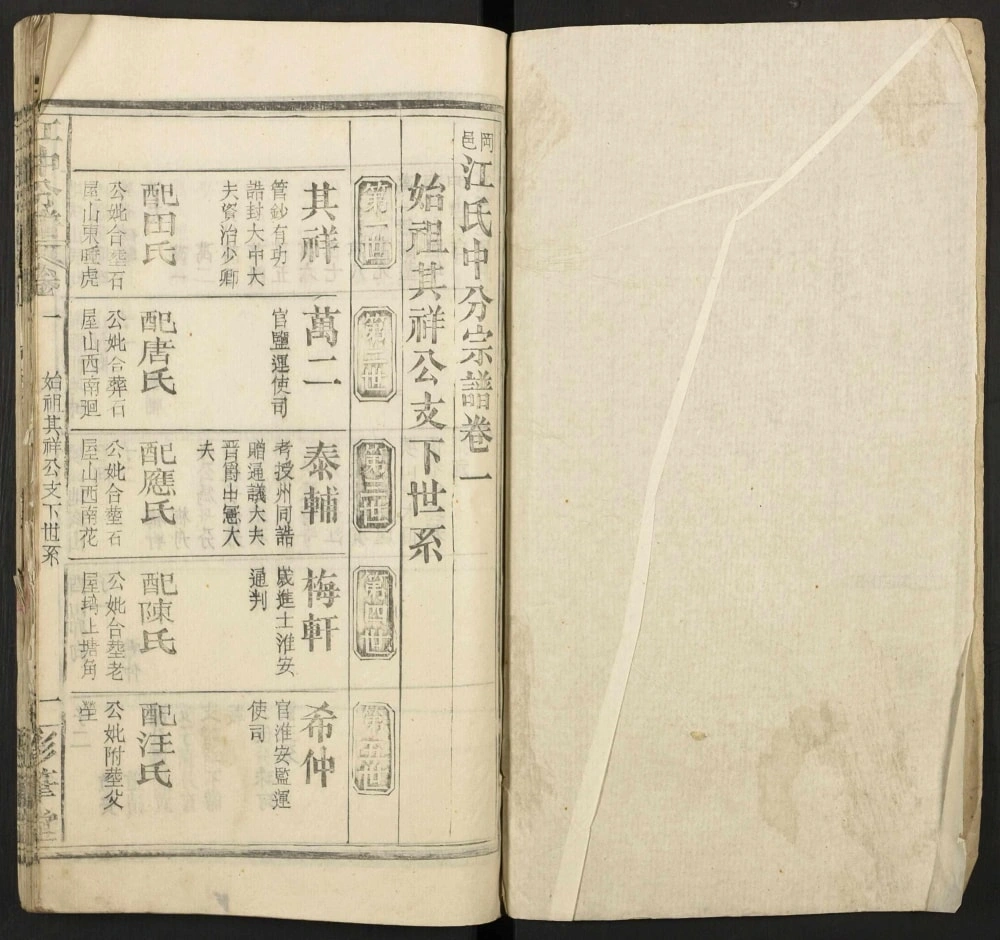 岡邑江氏中分宗譜卷一
始祖其祥公支下世系
第一世
其祥
管鈔有功
誥封大中大
夫資治少卿
配田氏
公妣合塟石
屋山東睡虎
第二世
萬二
官鹽運使司
配唐氏
公妣合葬石
屋山西南廻
第三世
泰輔
考授州同誥
贈通議大夫
晉爵中憲大
夫
配應氏
公妣合塟石
屋山西南花
第四世
梅軒
歲進士淮安
通判
配陳氏
公妣合塟老
屋塢上塘角
第五世
希仲
官淮安監運
使司
配汪氏
公妣附塟父
塋
江中分宗譜 卷一
始祖其祥公支下世系
一
彩筆堂